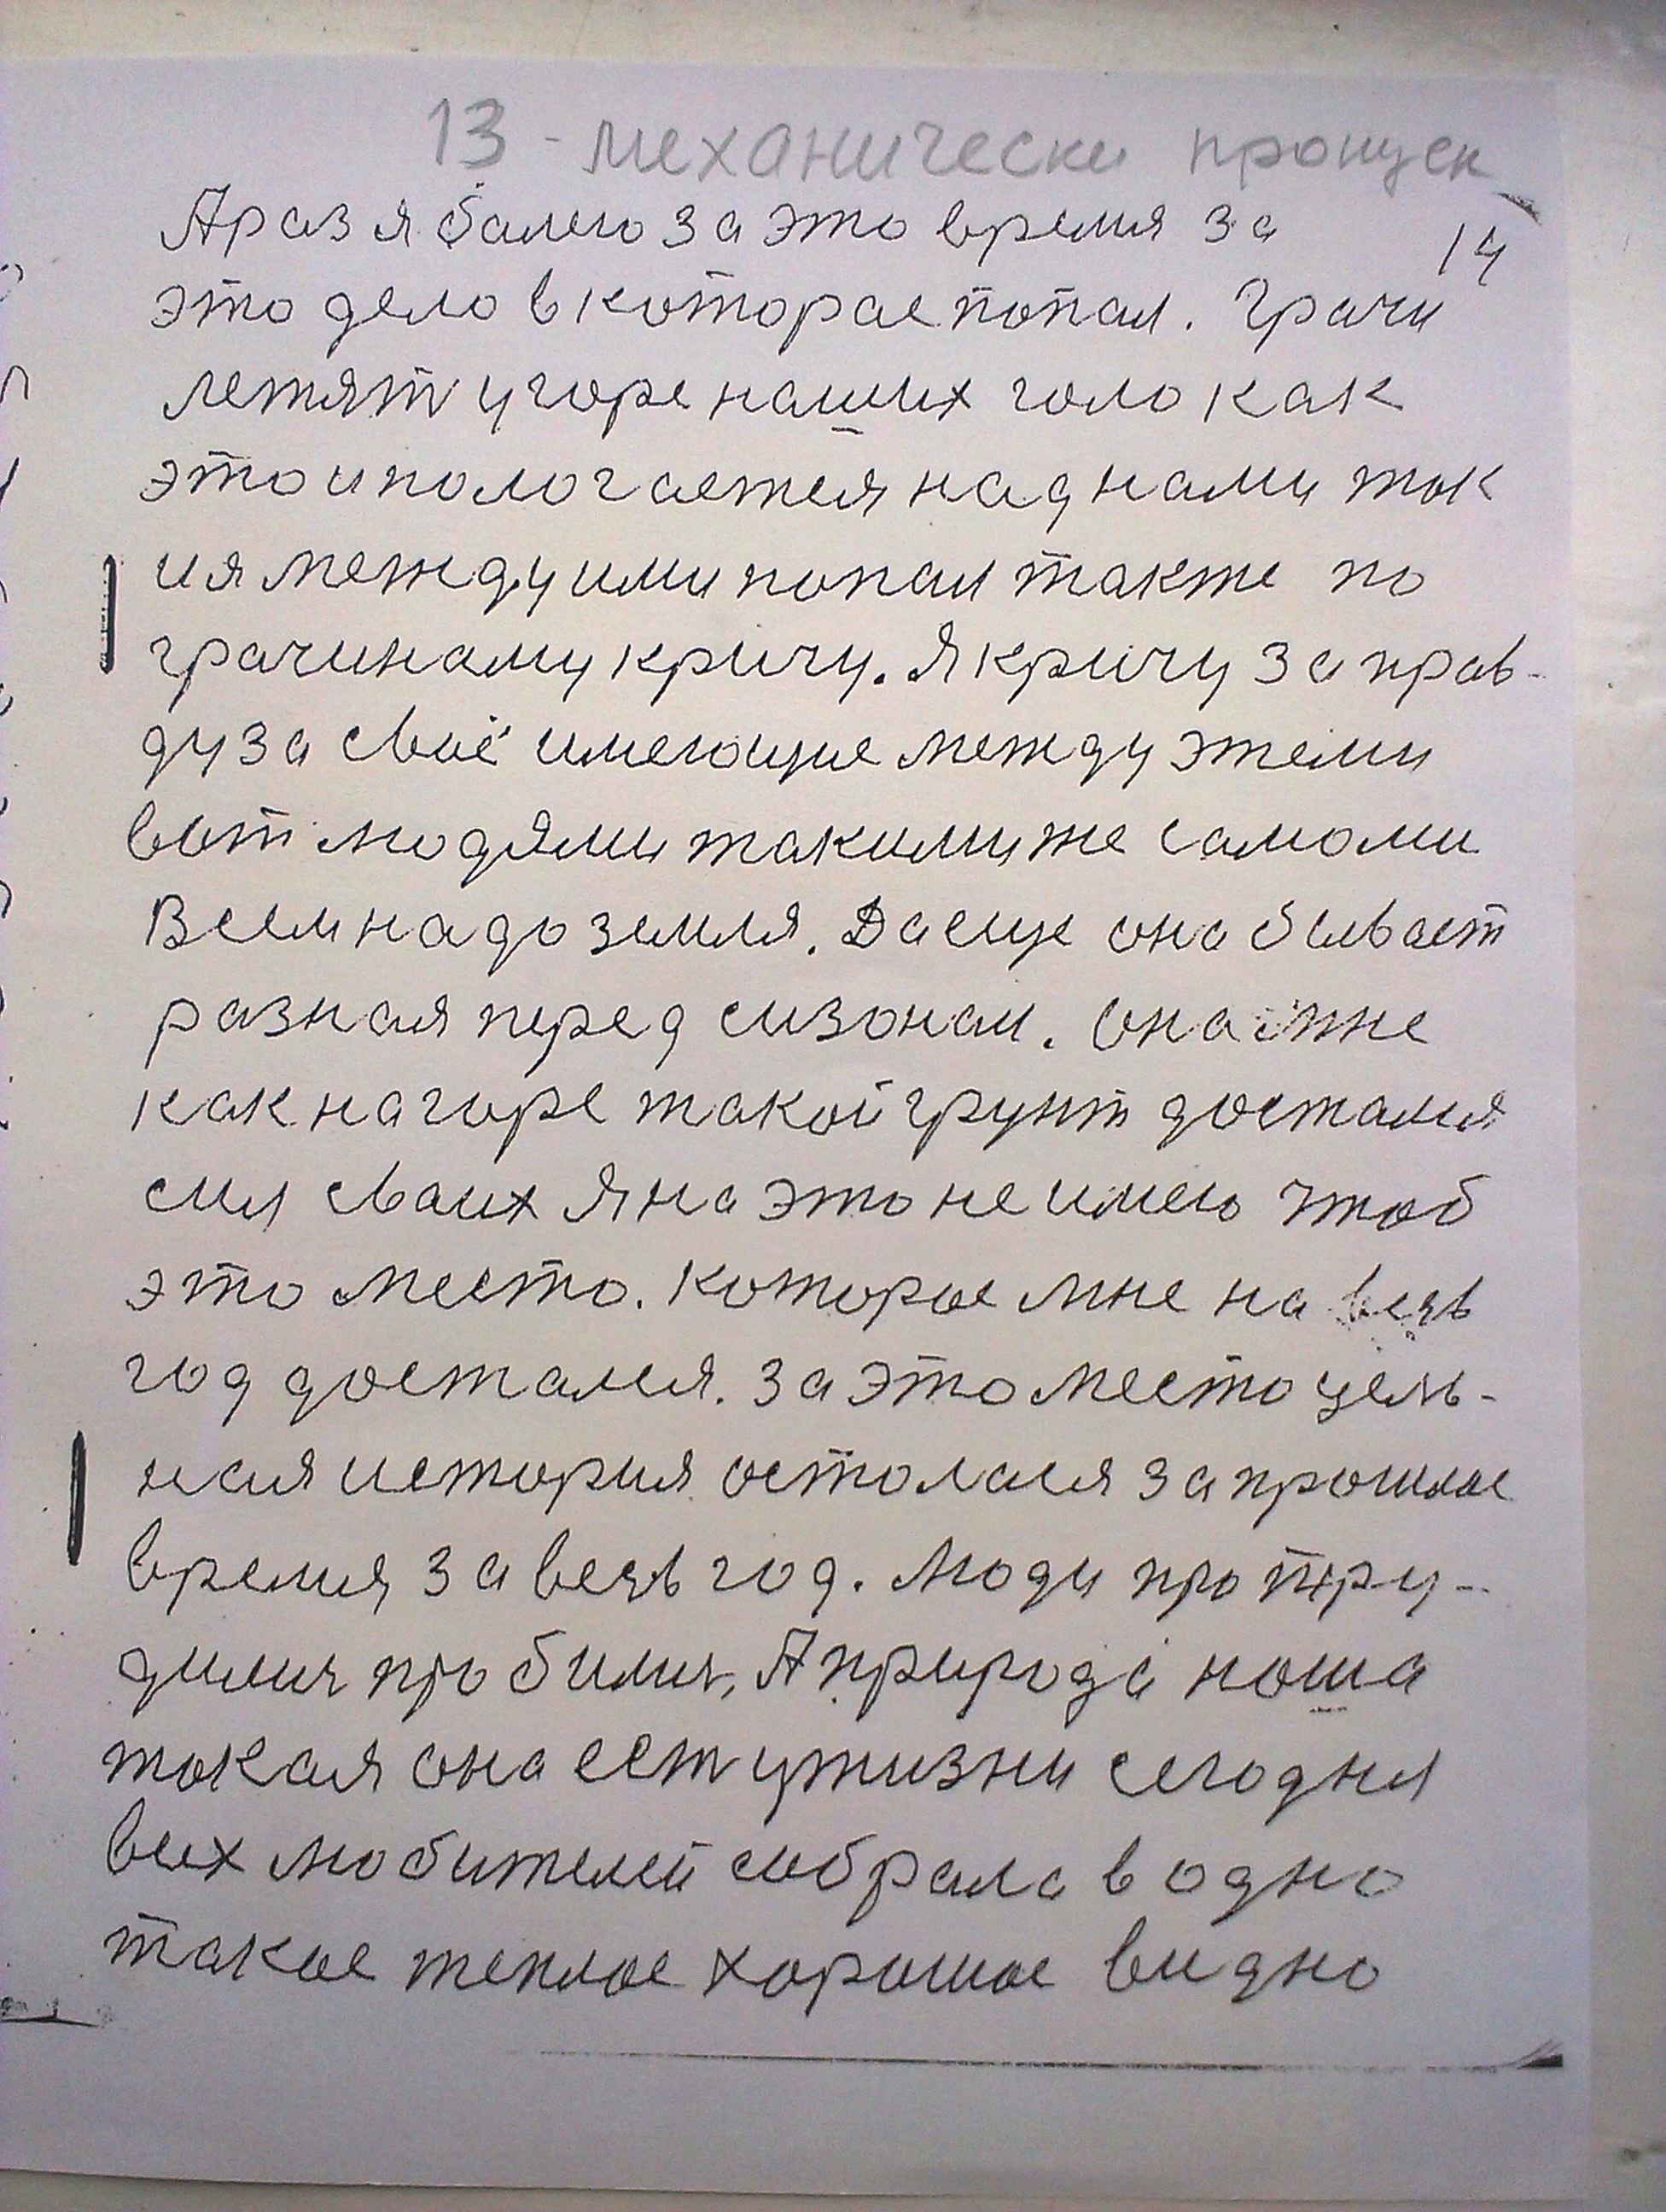 13 - механически пропуск
А раз я балею за это время за
14
это дело в которае попал. Грачи
летят у горе наших голо как
это и пологается над нами ток
и я между ими попал также по
грачинаму кричу. Я кричу за прав-
ду за своё имеющие между этеми
вот людями такими же самоми
Всем надо земля. Да еще она бывает
разная перед сизонам. Она мне
как на горе такой грунт достался
сил сваих Я на это не имею чтоб
это место. которое мне на весь
год достался. За это место цель-
ная история осталася за прошлое
время за весь год. Люди про тру-
дились про били, А природа ноша
токая она ест у жизни сегодня
всих любителей собрала в одно
такое теплое хорошое видно